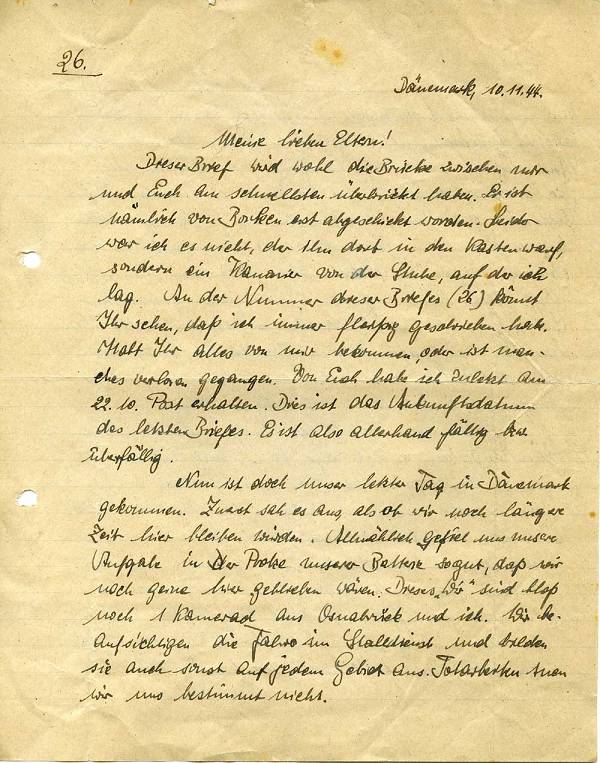 26.
Dänemark, 10.11.44.
Meine lieben Eltern!
Dieser Brief wird wohl die Brücke zwischen mir
und Euch am schnellsten überbrückt haben. Er ist
nämlich von Borken erst abgeschickt worden. Leider
war ich es nicht, der ihn dort in den Kasten warf,
sondern ein Kanonier von der Stube, auf der ich
lag. An der Nummer dieses Briefes (26) könnt
Ihr sehen, daß ich immer fleißig geschrieben habe.
Habt Ihr alles von mir bekommen, oder ist man-
ches verloren gegangen. Von Euch habe ich zuletzt am
22.10. Post erhalten. Dies ist das Ankunftsdatum
des letzten Briefes. Es ist also allerhand fällig bzw.
überfällig.
Nun ist doch unser letzter Tag in Dänemark
gekommen. Zuerst sah es aus, als ob wir noch längere
Zeit hier bleiben würden. Allmählich gefiel uns unsere
Aufgabe in der Protze unserer Batterie so gut, daß wir
noch gerne hier geblieben wären. Dieses „Wir“ sind bloß
noch 1 Kamerad aus Osnabrück und ich. Wir be-
aufsichtigen die im Stalldienst und bilden
sie auch sonst auf jedem Gebiet aus. Totarbeiten tuen
wir uns bestimmt nicht.